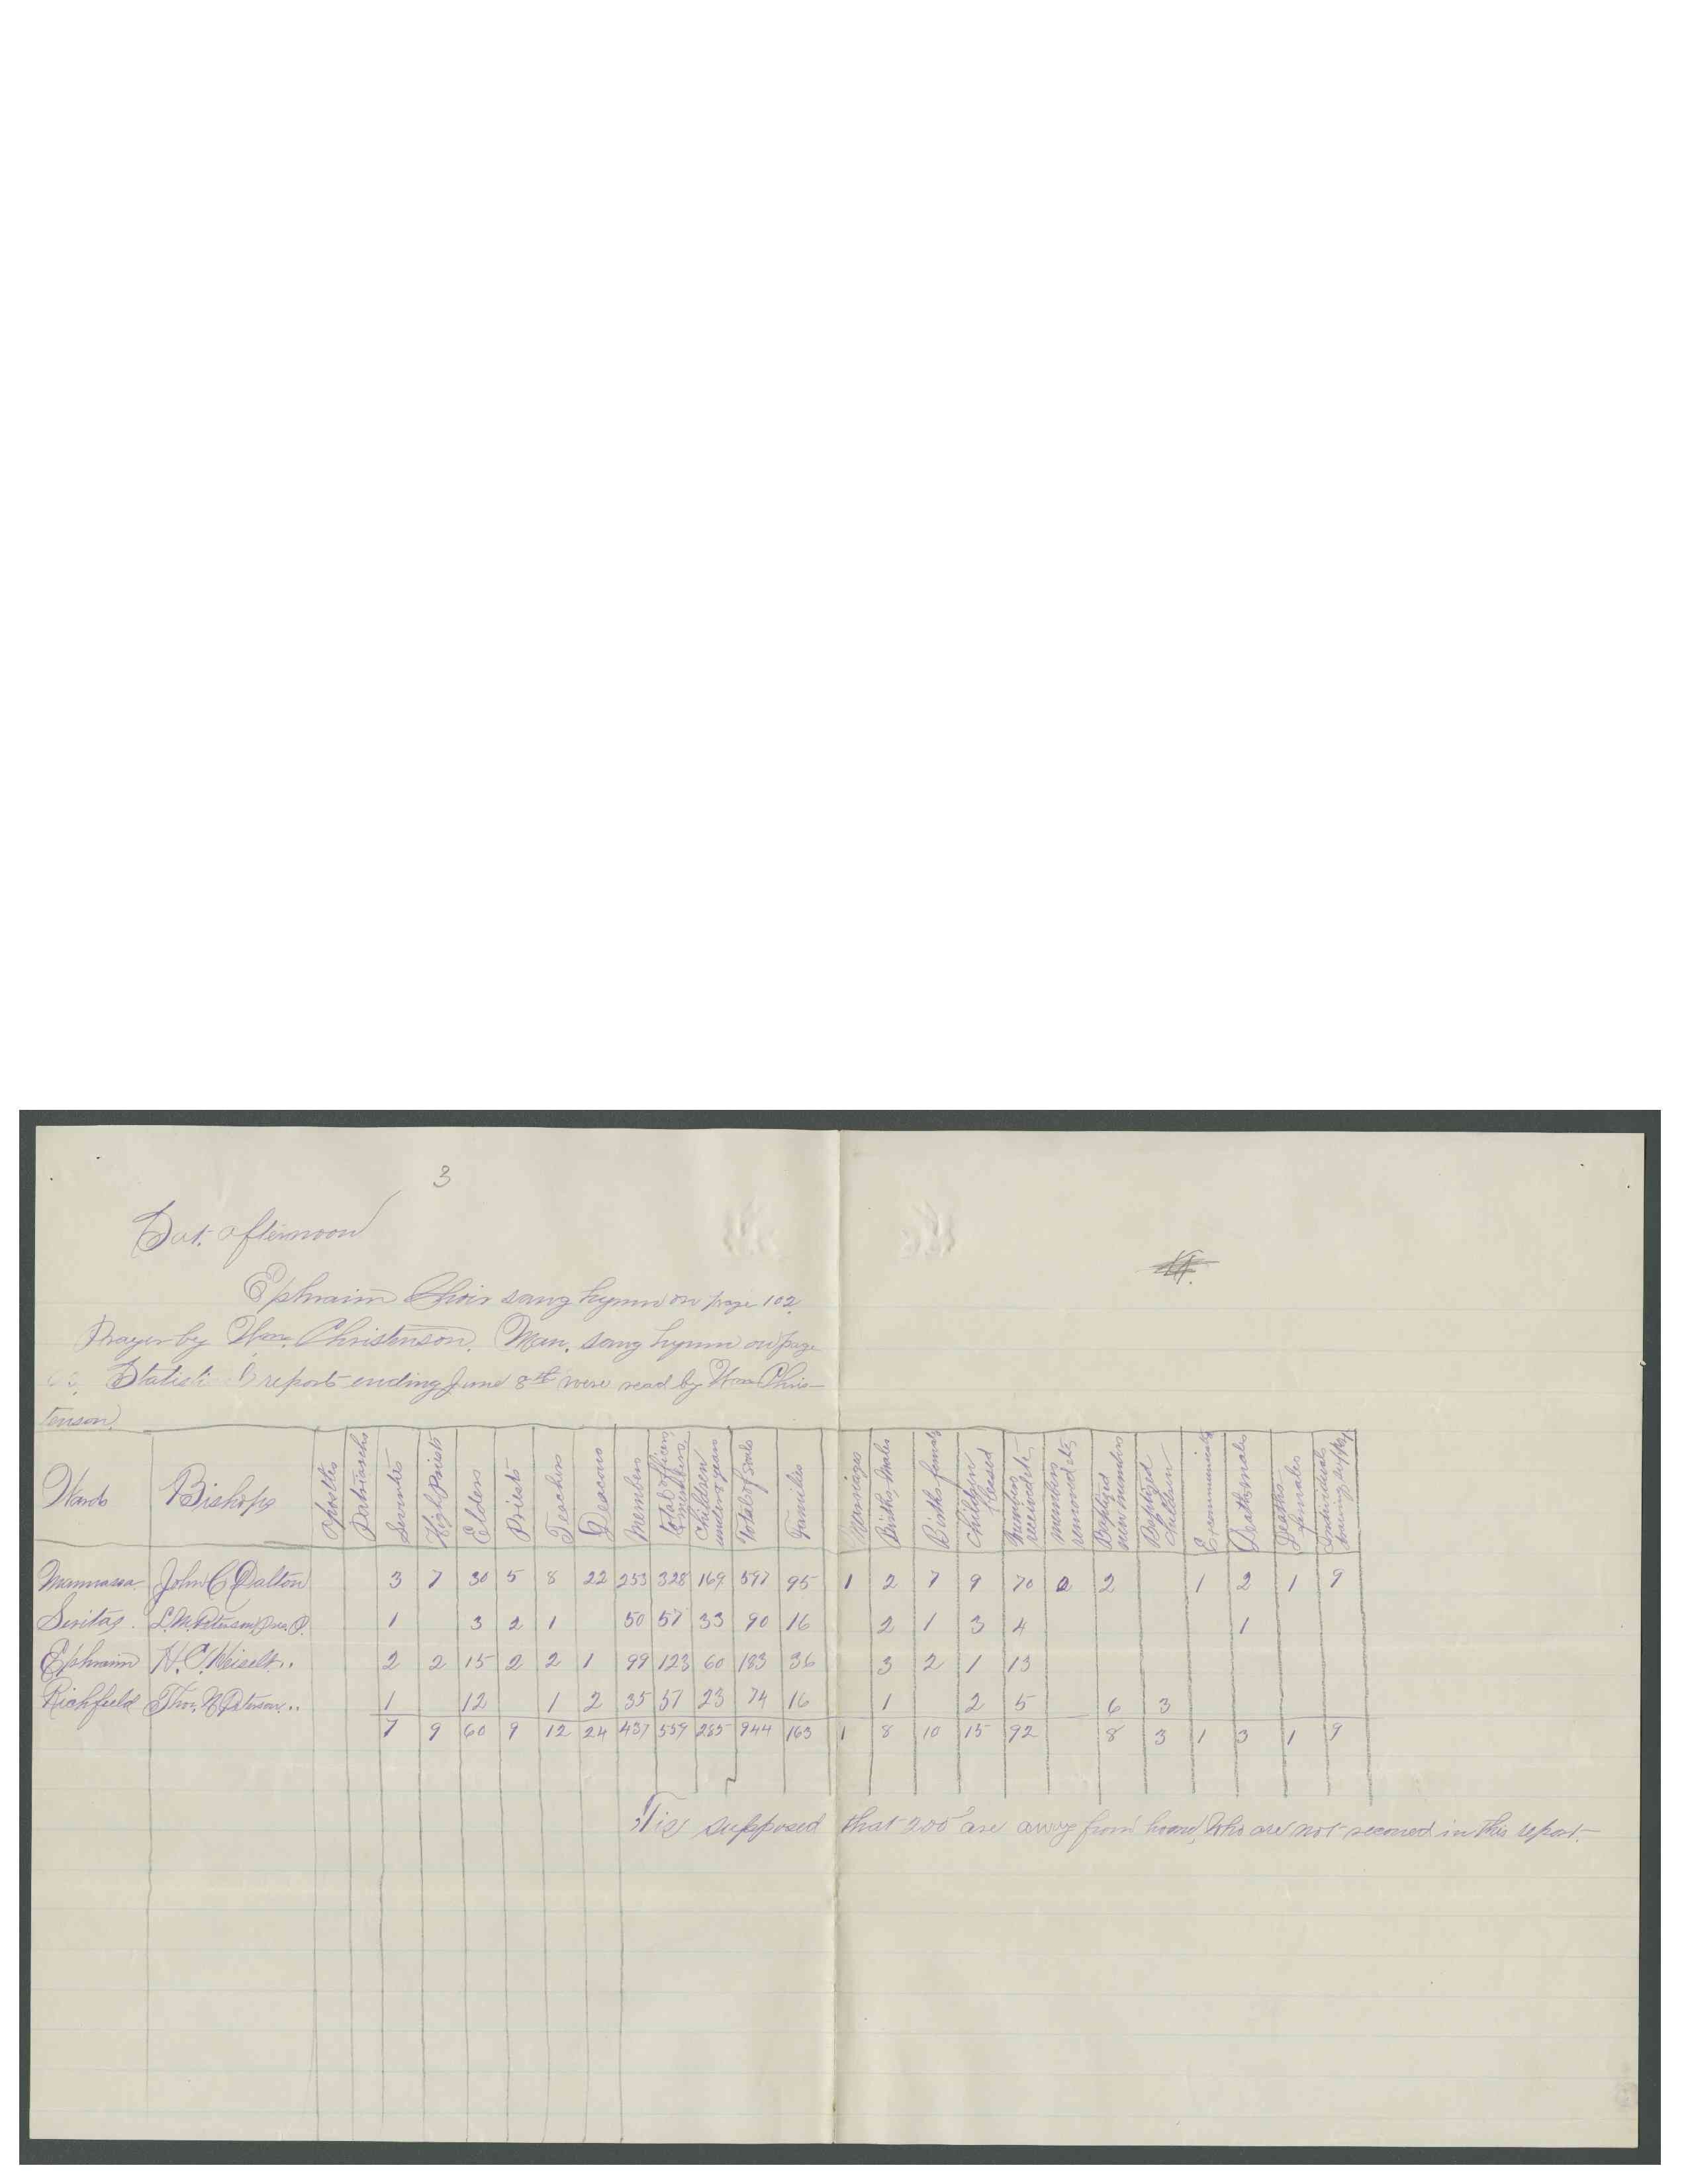 3
Sat. afternoon
Ephraim Choir sang hymn on page 102.
Prayer by Wm. Christenson. Man. sang hymn on page
report ending June 8th were read by Wm Chris-
tenson.
Wards Bishops Apostles Patriarchs Seventies High priests Elders Priests Teachers Deacons Members total officers & members Children under 8 years Total of souls Families Marriages Births males Births females Children blessed members received etc members removed etc Baptized new members Baptized children Excommunicants Deaths males Deaths females
Mannassa John C Dalton 3 7 30 5 8 22 253 328 169 597 95 1 2 7 9 70 0 2 1 2 1 9
L. M. Peterson Pre. P. 1 3 2 1 50 57 33 90 16 2 1 3 4 1
Ephraim H. C. 2 2 15 2 2 1 99 123 60 183 36 3 2 1 13
Richfield Thos. N. Peterson " 1 12 1 2 35 51 23 74 16 1 2 5 6 3
7 9 60 9 12 24 437 559 285 944 163 1 8 10 15 92 8 3 1 3 1 9
Tis supposed that 200 are away from home, who are not in this report.